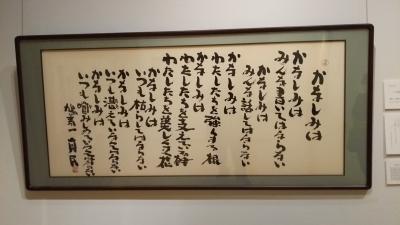 かなしみは
かなしみは
みんな書いてはならない
かなしみは
みんな話してはならない
かなしみは
わたしたちを強くする根
かなしみは
わたしたちを支えている幹
かなしみは
わたしたちを美しくする花
かなしみは
いつも枯らしてはならない
かなしみは
いつも湛えていなくてはならない
かなしみは
いつも噛みしめていなくてはならない